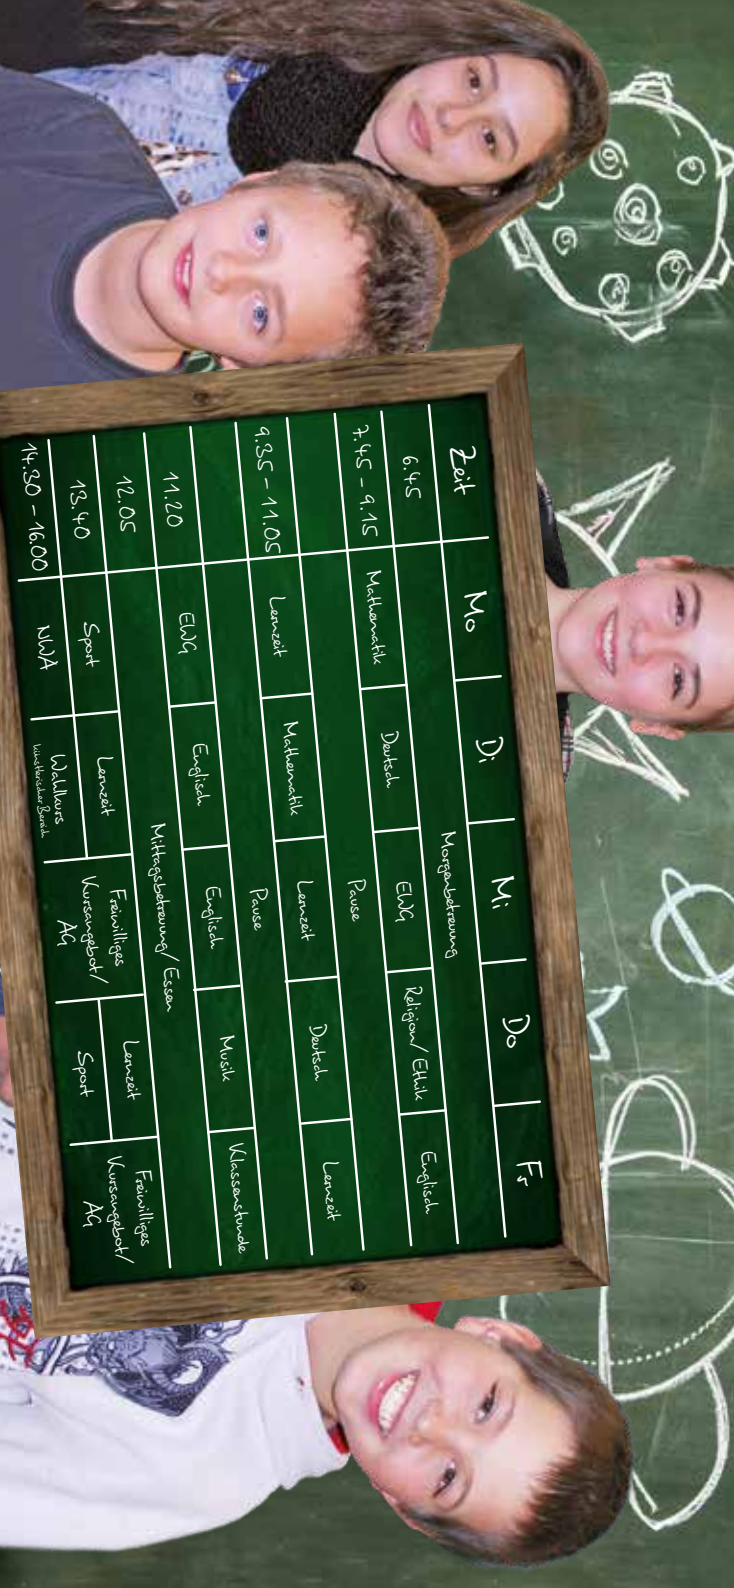 Zeit Mo Di Mi Do Fr
6.45 Morgenbetreuung
7.45 - 9.15 Mathematik Deutsch EWG Religion/Ethik Englisch
Pause
9.35 - 11.05 Lernzeit Mathematik Lernzeit Deutsch Lernzeit
Pause
11.20 EWG Englisch Englisch Musik Klassenstunde
12.05 Mittagsbetreuung/Essen
13.40 Sport Lernzeit Freiwilliges Kursangebot/AG Lernzeit Freiwilliges Kursangebot/AG
14.30 - 16.00 NWA Wahlkurs künstlerischer Bereich Sport